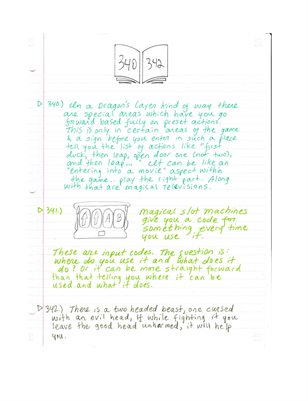 340 342
340) In a Dragon's Layer kind of way there
are special areas which have you go
forward based fully on preset actions.
This is only in certain areas of the game
& a sign before you enter in such a place
tell you the list of actions like "first
duck, then loop, open door one (not two),
and then loop..." It can be like an
"entering into a movie" aspect within
the game. play the right part. Along
with that are magical televisions.
341) magical slot machines
give you a code for
something every time
you use it.
These are input codes. The question is:
where do you use it and what does it
do? Or it can be more straight forward
than that telling you where it can be
used and what it does.
342) There is a two headed beast, one cursed
with an evil head, if while fighting it you
leave the good head unharmed, it will help
you.